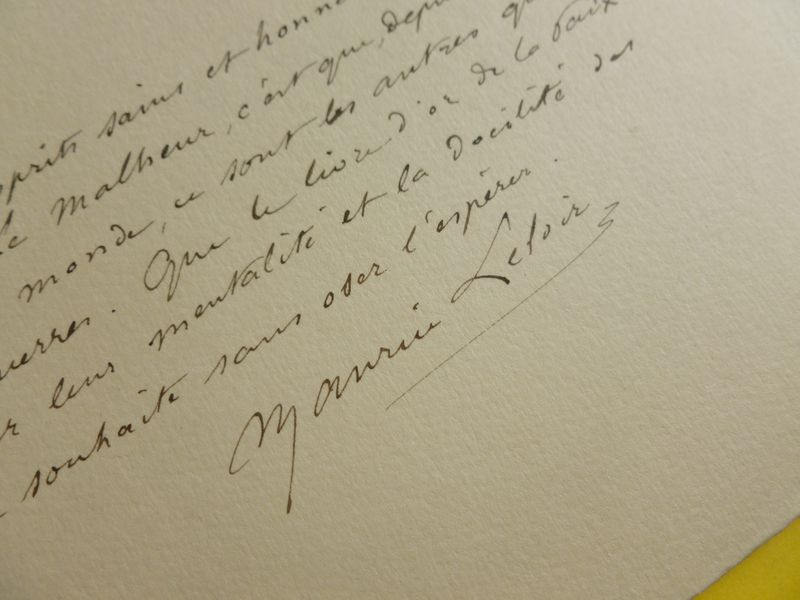 esprits sains et honnê
Le malheur, c'est que, depu
monde, ce sont les autres qu
guerres. Que le livre d'or de la Paix
leur mentalité et la docilité des
souhaite sans oser l'espérer.
Maurice Leloir